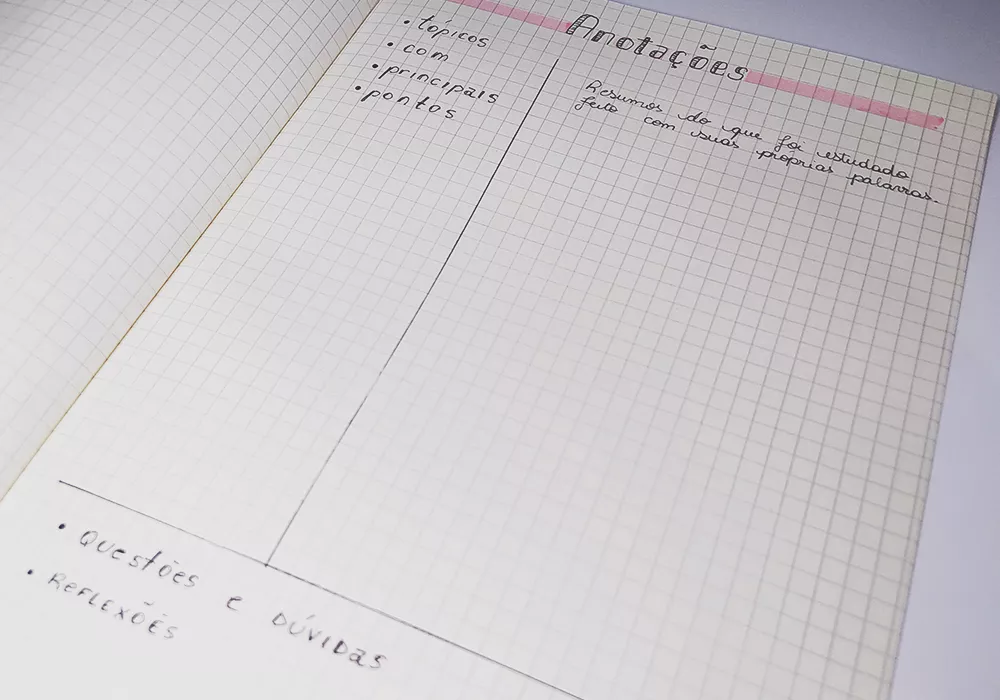 Anotações
• tópicos
• com
• principais
• pontos
Resumos do que foi estudado
feito com suas próprias palavras.
• Questões e DÚVIDas
• REFLEXÕES